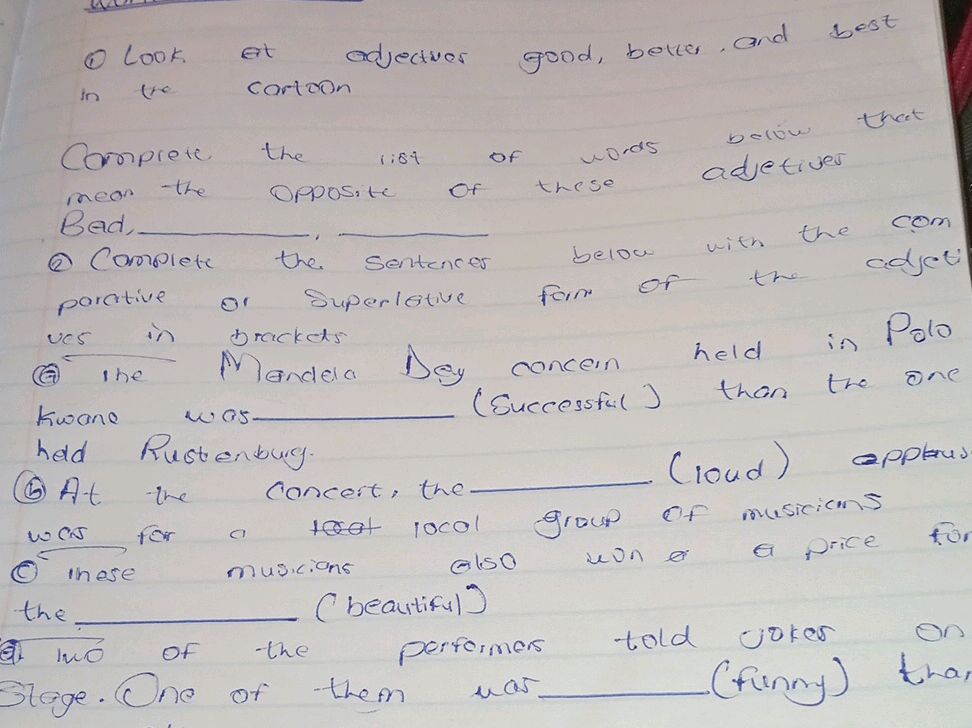 ① Look at adjectives good, better, and best
in the cartoon
Complete the list of words below that
mean the opposite of these adjetives
Bad, ________, ________
② Complete the sentences below with the com
parative or Superlative form of the adjeti
ves in brackets
ⓐ The Mandela Day concern held in Polo
kwane was ________ (Successful) than the one
held Rustenburg.
ⓑ At the concert, the ________ (loud) applaus
was for a local group of musicians
ⓒ These musicians also won a price for
the ________ (beautiful)
ⓓ Two of the performers told jokes on
Stage. One of them was ________ (funny) than